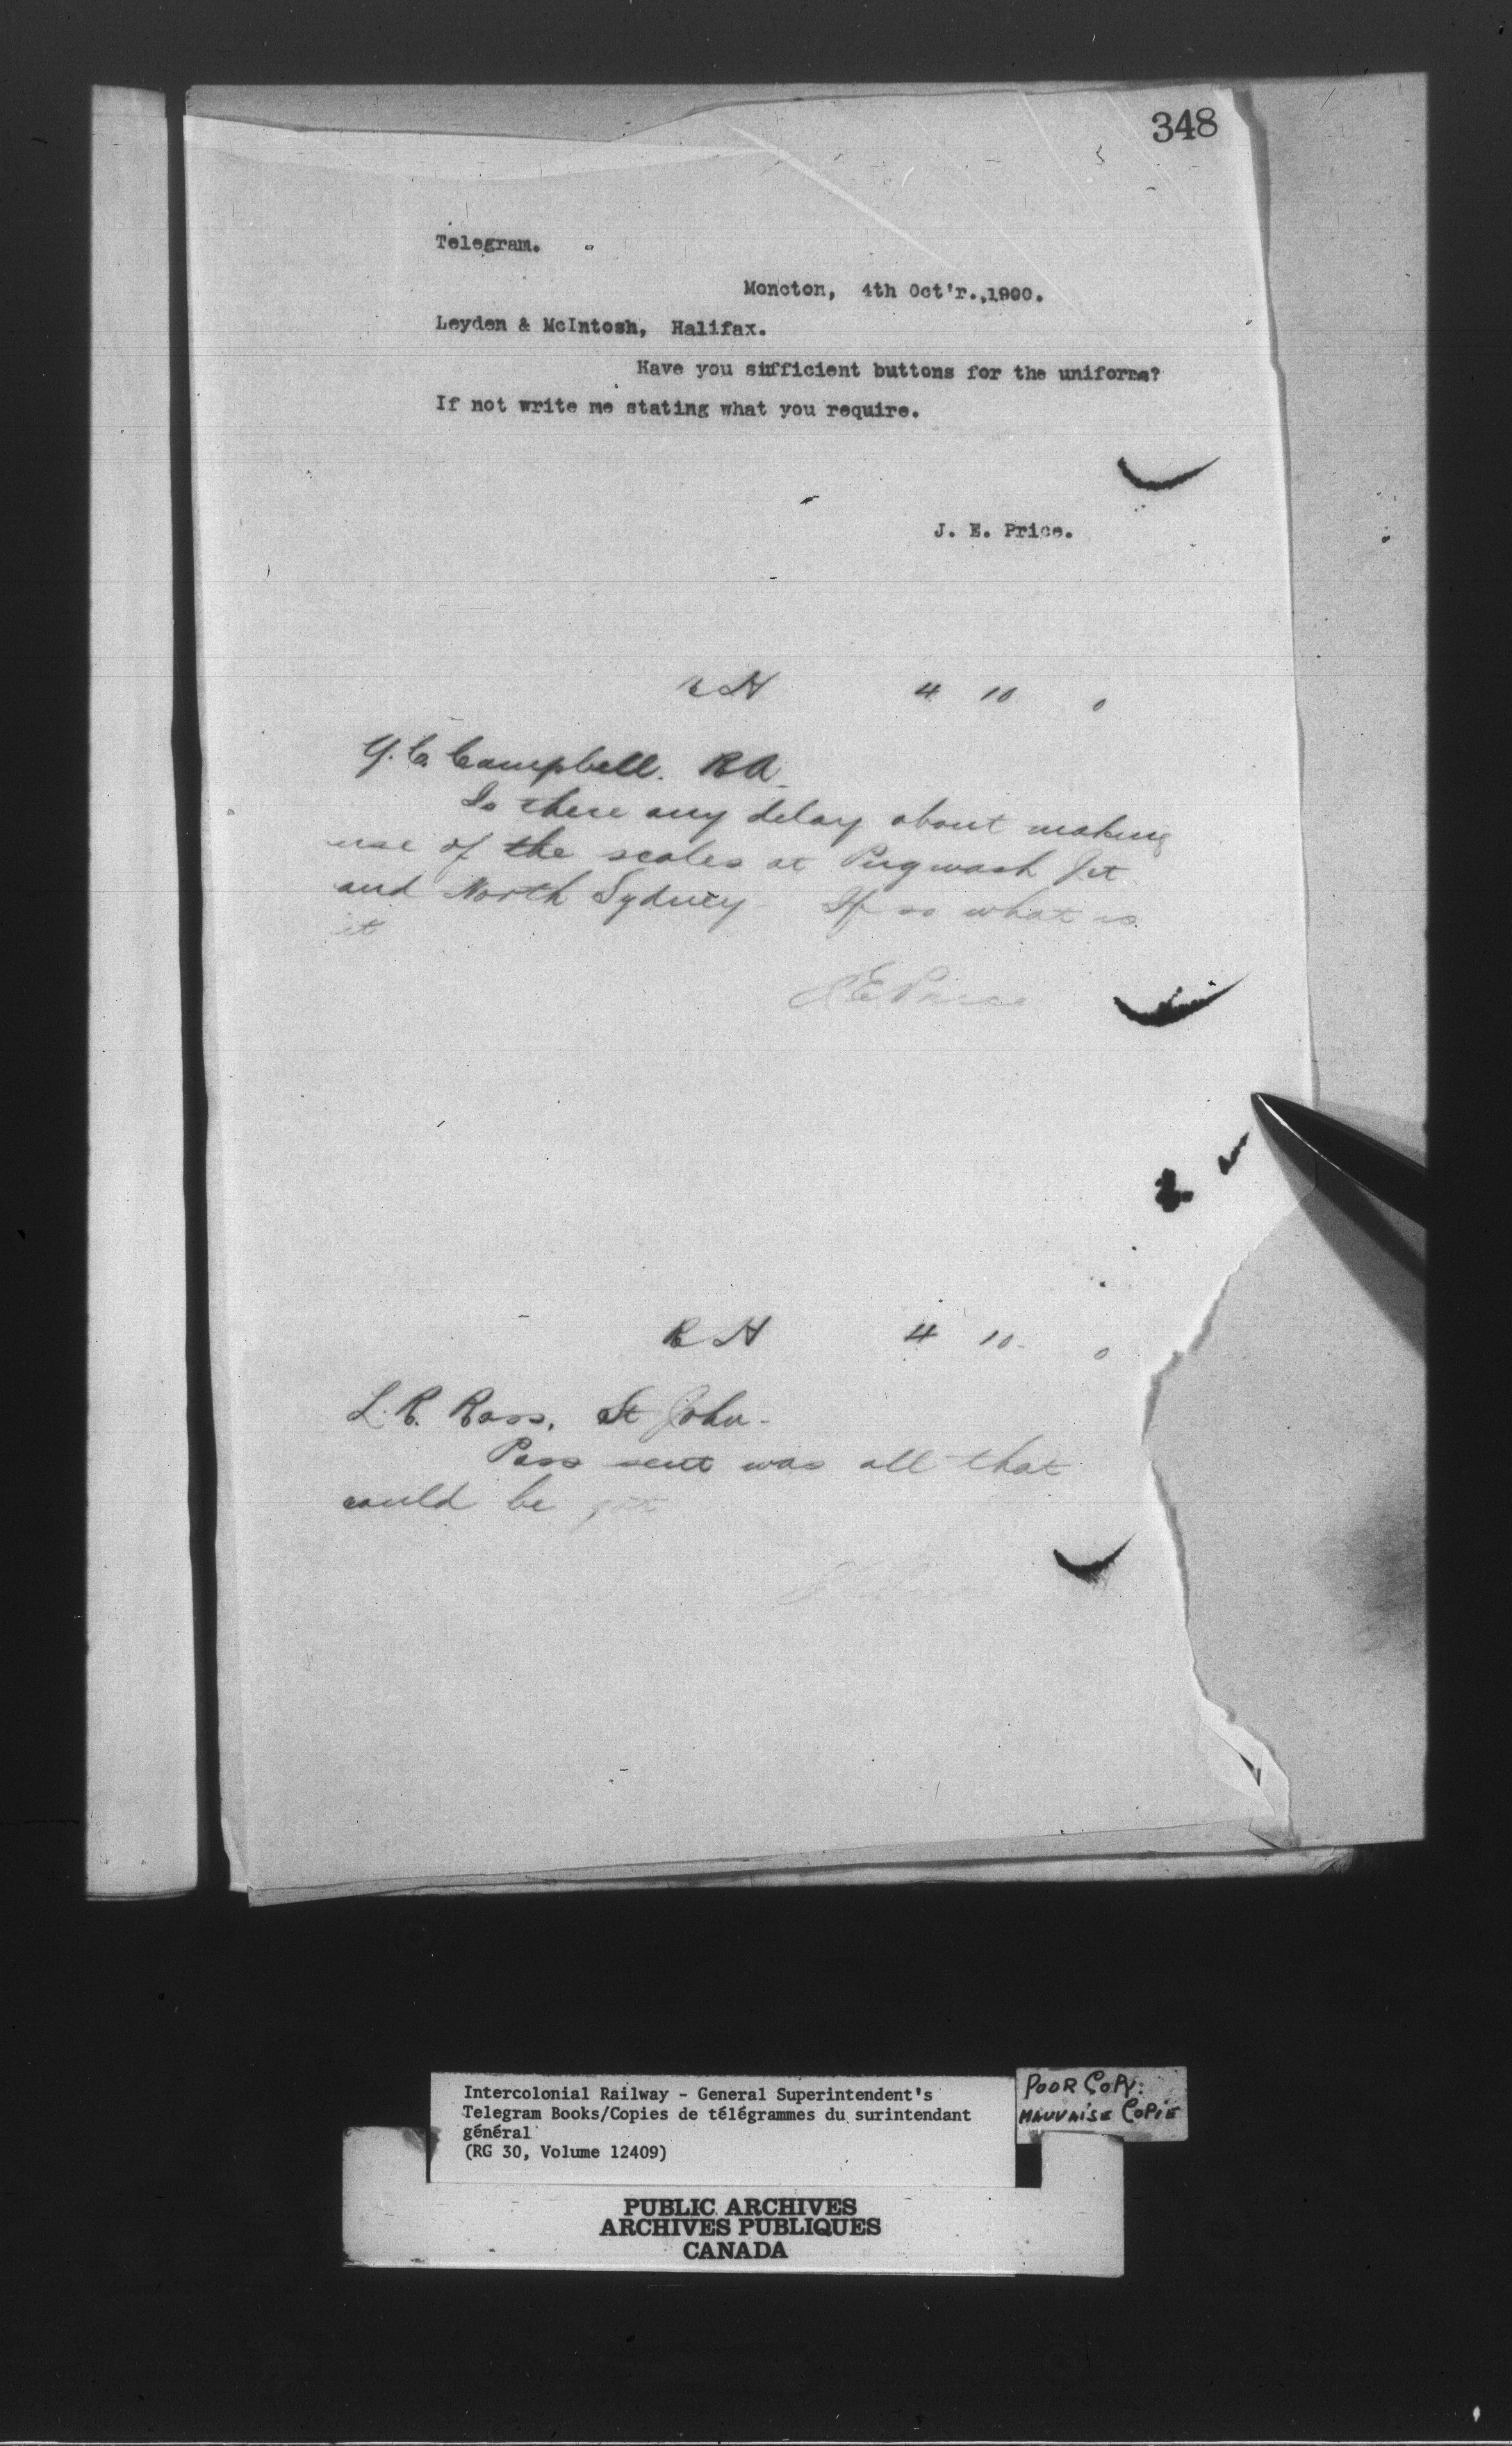 348
Telegram.
Moncton, 4th Oct'r.,1900.
Leyden & McIntosh, Halifax.
Have you sufficient buttons for the uniforms?
If not write me stating what you require.
J. E. Price.
RH 4 10 0
Y. C. Campbell. RA
Is there any delay about making
use of the scales at Pugwash Jct
and North Sydney - If so what is
it
JE Price
RH 4 10 - 0
L. R. Ross, St John -
Pass sent was all that
could be got
Intercolonial Railway - General Superintendent's
Telegram Books/Copies de télégrammes du surintendant
général
(RG 30, Volume 12409)
POOR COPY:
MAUVAISE COPIE
PUBLIC ARCHIVES
ARCHIVES PUBLIQUES
CANADA